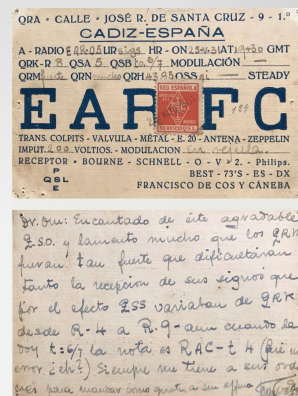 QRA - CALLE - JOSÉ R. DE SANTA CRUZ - 9 - 1.º
CADIZ-ESPAÑA
A - RADIO EAR-05 UR sigs. HR - ON 25-4-31 AT 19=30 GMT
QRK - R 8 QSA 5 QSB to. 6/7 MODULACIÓN —
QRM fuerte QRN mucho QRH 43.85 QSS si — STEADY
EAR FC
RED ESPAÑOLA
TRANS. COLPITS - VALVULA - MÉTAL - E. 20 - ANTENA - ZEPPELIN
IMPUT. 200 VOLTIOS. MODULACION en rejilla.
RECEPTOR - BOURNE - SCHNELL - O - V - 2. - Philips.
PSE QSL
BEST - 73'S - ES - DX
FRANCISCO DE COS Y CÁNEBA
Dr. Om: Encantado de éste agradable
QSO. y lamento mucho que los QRM
fueran tan fuerte que dificultaran
tanto la recepcion de sus signos que
por el efecto QSS variaban de QRK
desde R-4 a R-9- aun cuando la
doy t: 6/7 la nota es RAC-t 4
error ¿eh?) Siempre me tiene a sus
para mandar como guste a Su